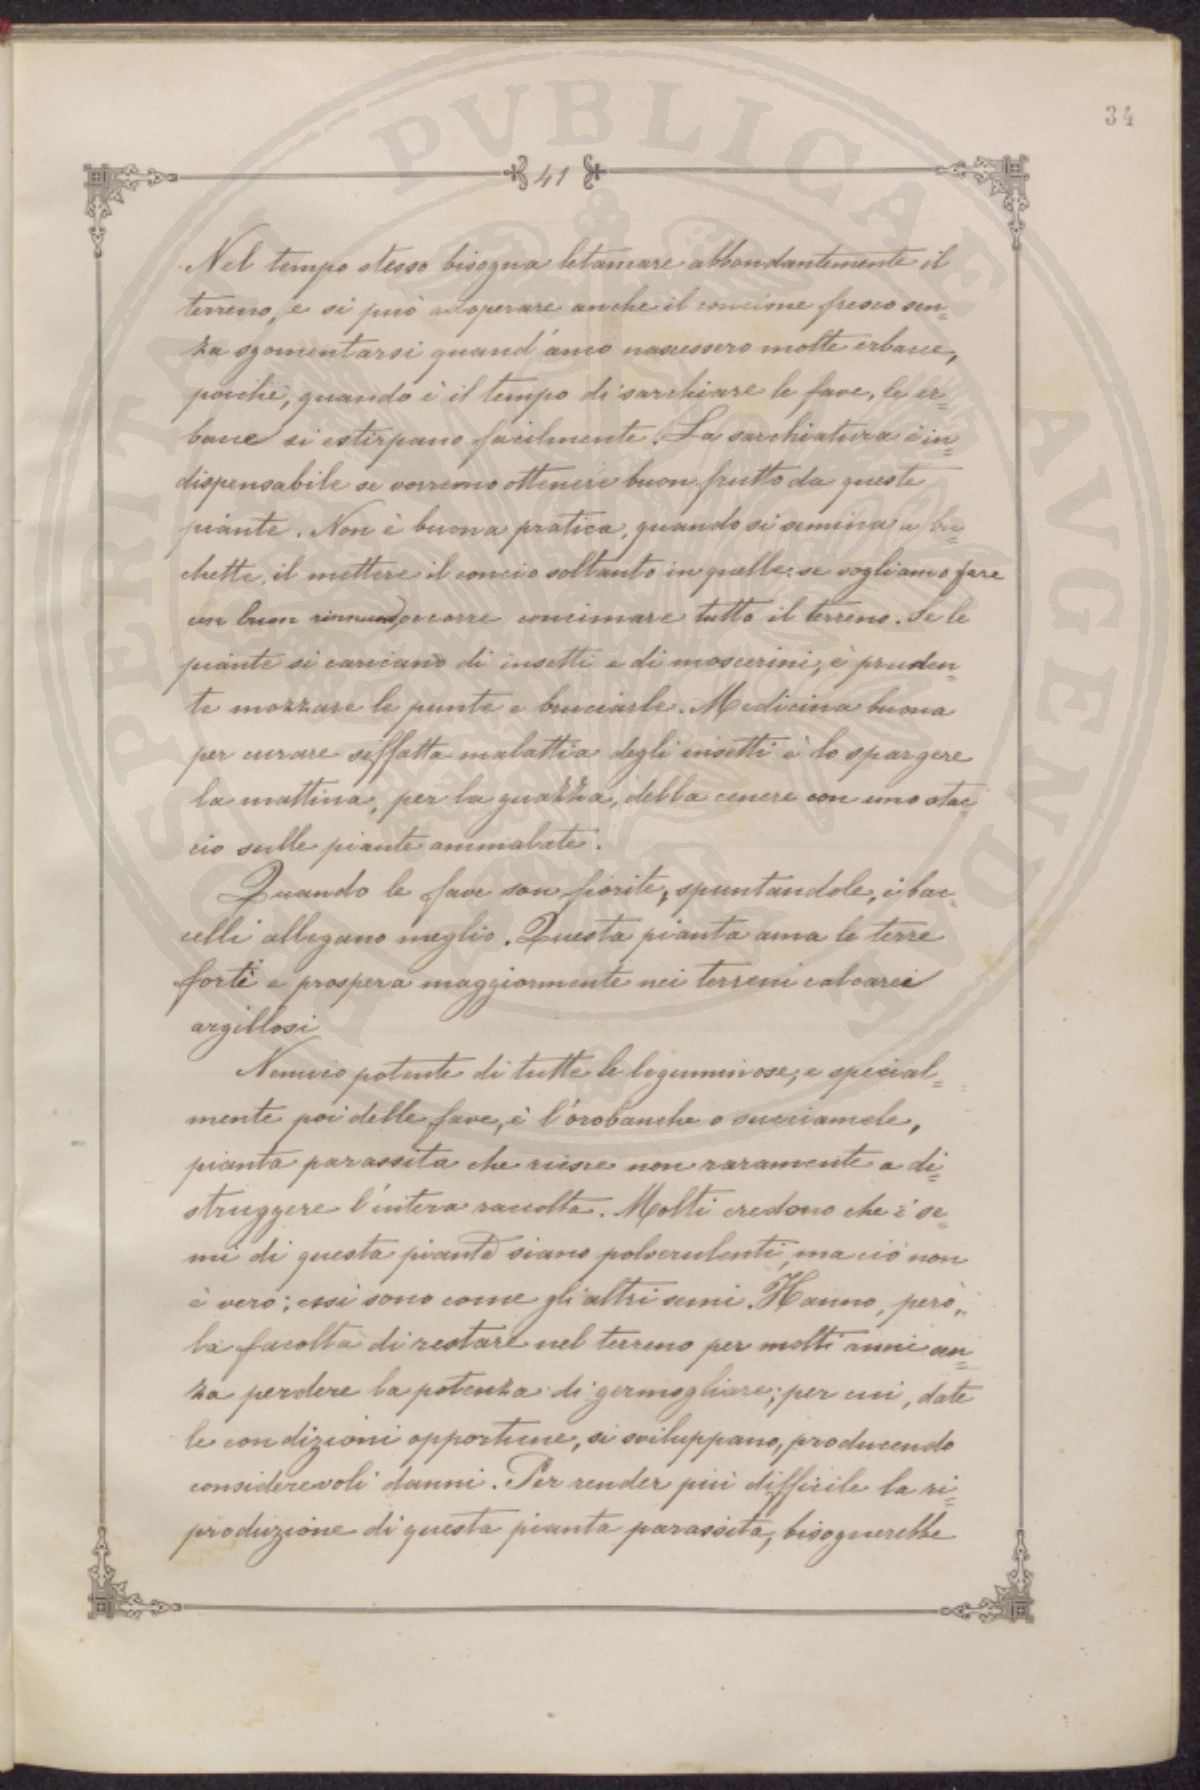 34
41
Nel tempo stesso bisogna letamare abbondantemente il
terreno, e si può adoperare anche il concime fresco sen=
za sgomentarsi quand'anco nascessero molte erbacce,
poichè, quando è il tempo di sarchiare le fave, le er=
bacce si estirpano facilmente. La sarchiatura è in=
dispensabile se vorremo ottenere buon frutto da queste
piante. Non è buona pratica, quando si semina a bu=
chette, il mettere il concio soltanto in quelle: se vogliamo fare
un buon rinnuovo, occorre concimare tutto il terreno. Se le
piante si caricano di insetti e di moscerini, è pruden=
te mozzare le punte e bruciarle. Medicina buona
per curare siffatta malattia degli insetti è lo spargere
la mattina, per la guazza, della cenere con uno stac=
cio sulle piante ammalate.
Quando le fave son fiorite, spuntandole, i bac=
celli allegano meglio. Questa pianta ama le terre
forti e prospera maggiormente nei terreni calcarei
argillosi
Nemico potente di tutte le leguminose, e special=
mente poi delle fave, è l'orobanche o succiamele,
pianta parassita che riesce non raramente a di=
struggere l'intera raccolta. Molti credono che i se=
mi di questa pianta siano polverulenti, ma ciò non
è vero; essi sono come gli altri semi. Hanno, però,
la facoltà di restare nel terreno per molti anni sen=
za perdere la potenza di germogliare; per cui, date
le condizioni opportune, si sviluppano, producendo
considerevoli danni. Per render più difficile la ri=
produzione di questa pianta parassita, bisognerebbe
PVBLICAE AVGENDAE